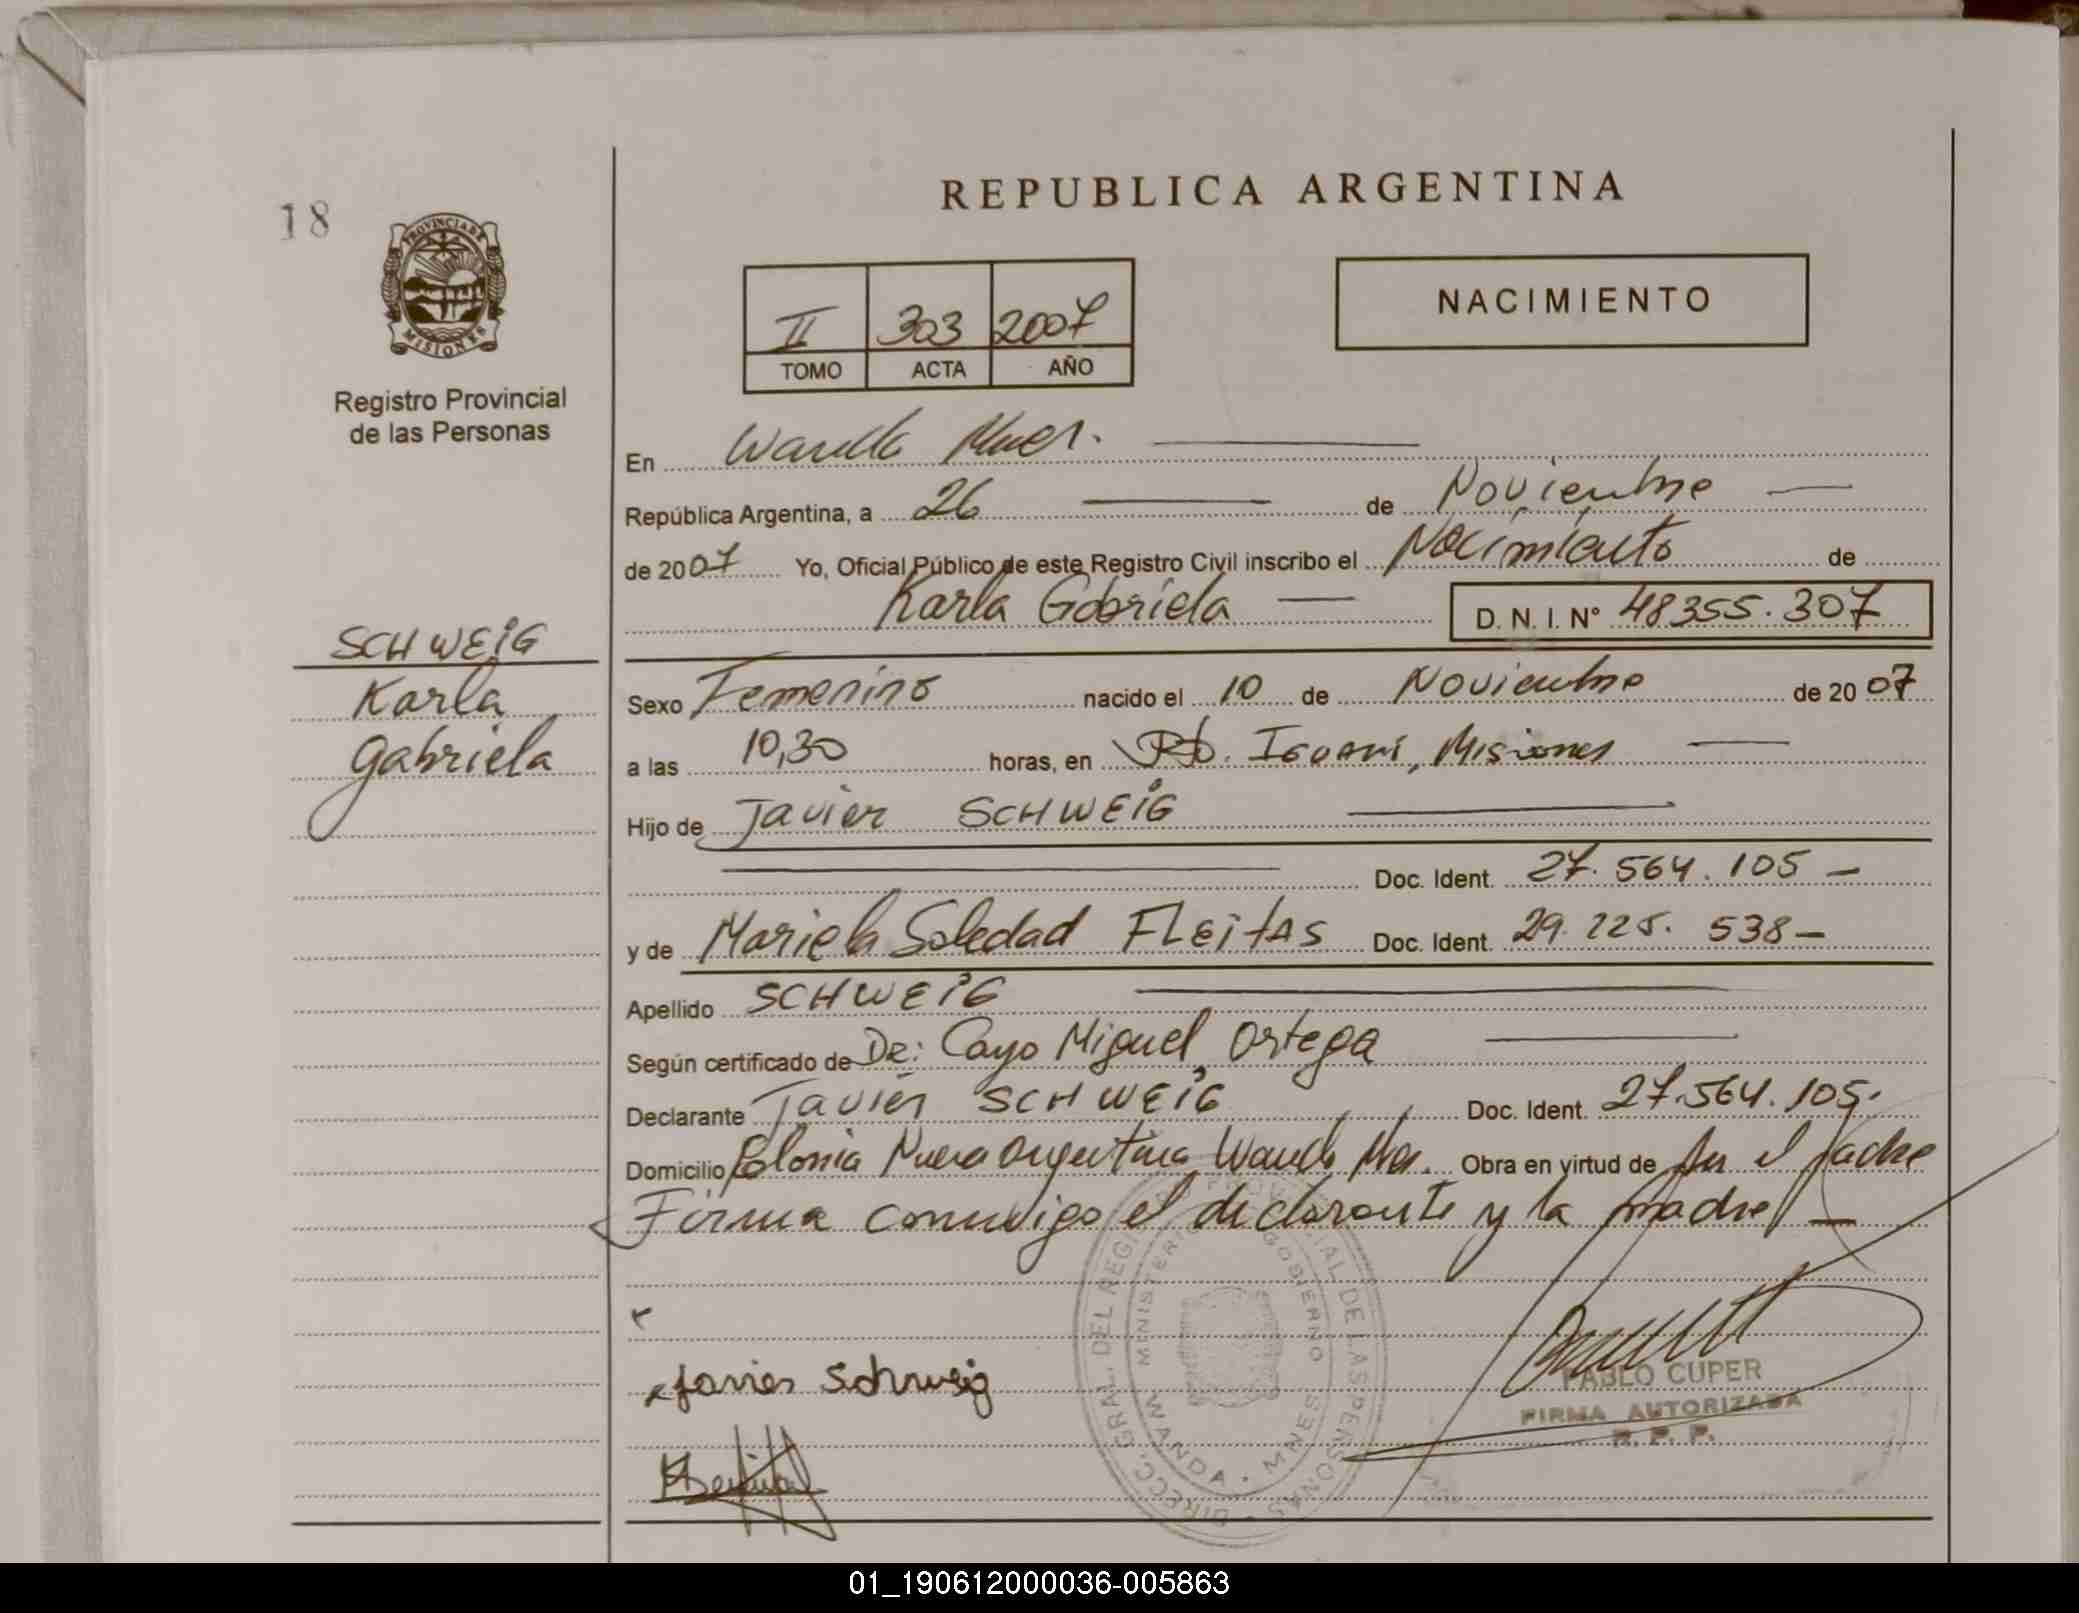 18
PROVINCIA DE
MISIONES
Registro Provincial
de las Personas
REPUBLICA ARGENTINA
II 303 2007
TOMO ACTA AÑO
NACIMIENTO
En Wanda Mnes.
República Argentina, a 26 de Noviembre
de 2007 Yo, Oficial Público de este Registro Civil inscribo el Nacimiento de
Karla Gabriela D. N. I. Nº 48355.307
SCHWEIG
Karla
Gabriela
Sexo Femenino nacido el 10 de Noviembre de 2007
a las 10,30 horas, en Pto. Iguazú, Misiones
Hijo de Javier SCHWEIG
Doc. Ident. 27.564.105
y de Mariela Soledad FLEITAS Doc. Ident. 29.225.538
Apellido SCHWEIG
Según certificado de Dr: Cayo Miguel Ortega
Declarante Javier SCHWEIG Doc. Ident. 27.564.105.
Domicilio Colonia Nueva Argentina Wanda Mnes. Obra en virtud de Ser el padre
Firma conmigo el declarante y la madre
Javier Schweig
DIRECC. GRAL. DEL REGISTRO PROVINCIAL DE LAS PERSONAS
MINISTERIO GOBIERNO
WANDA - MNES
PABLO CUPER
FIRMA AUTORIZADA
R. P. P.
01_190612000036-005863